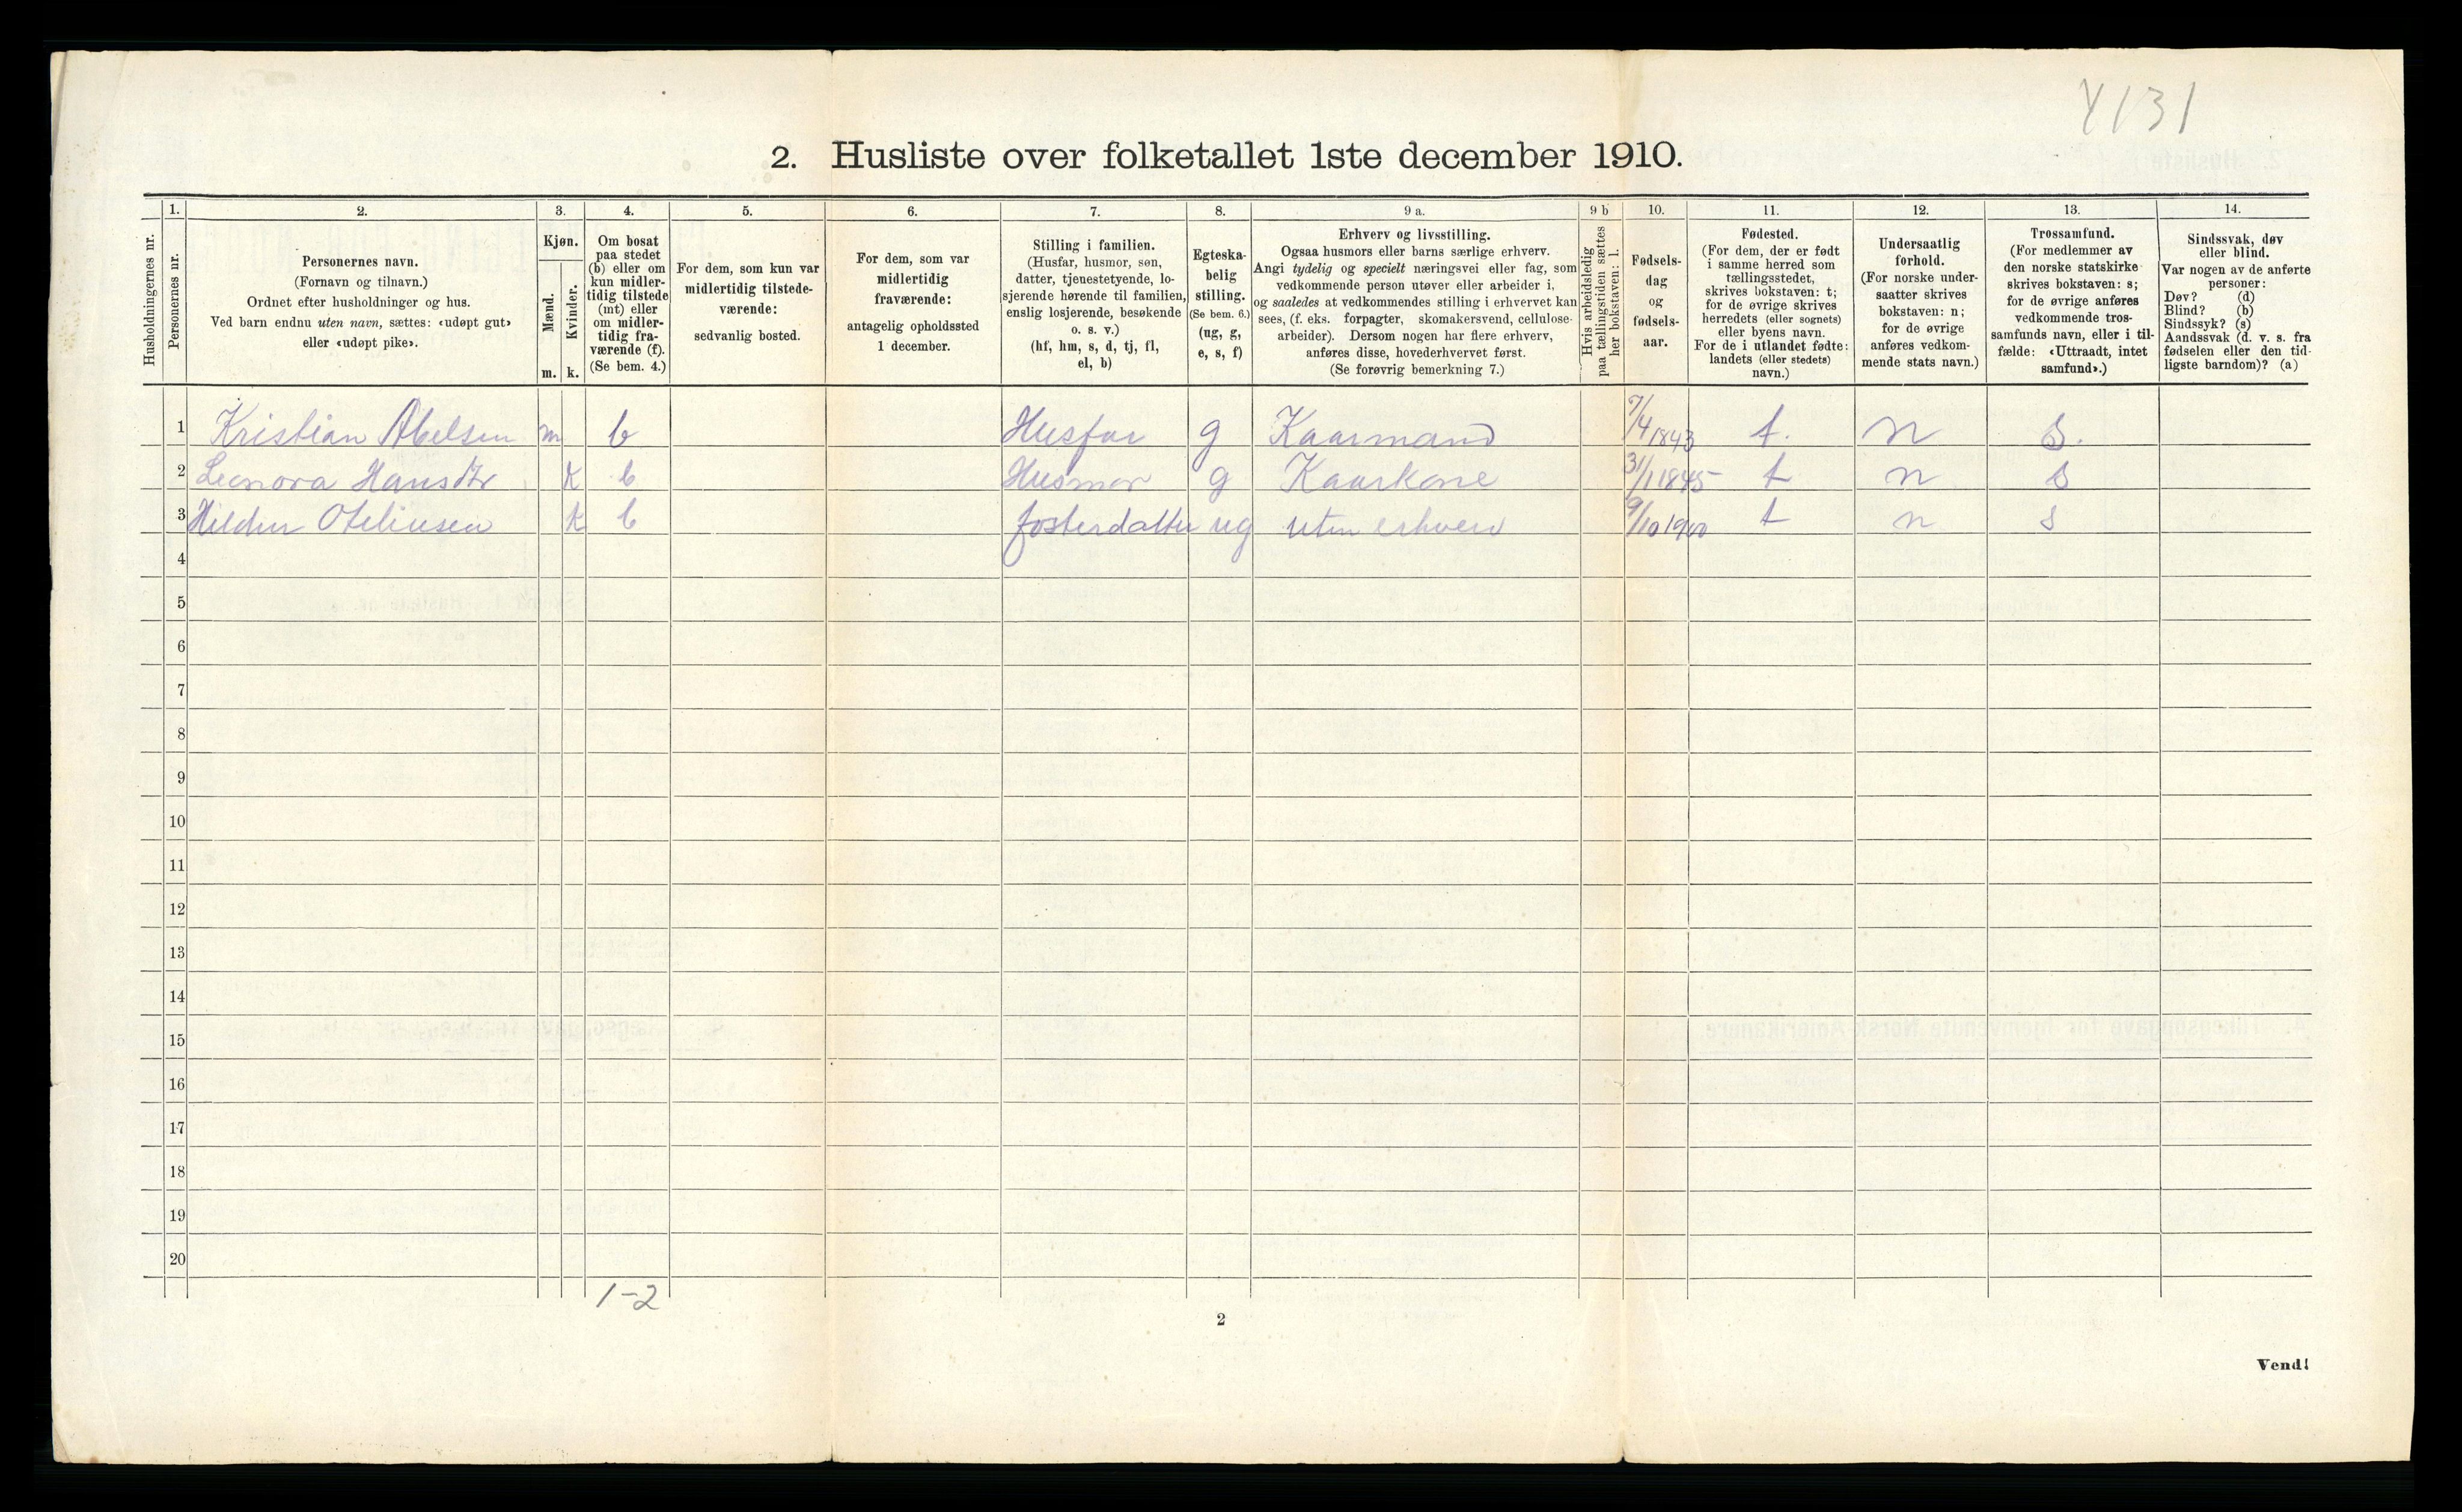 4131
2. Husliste over folketallet 1ste december 1910.
Husholdningernes nr.
1.
Personernes nr.
2.
Personernes navn.
(Fornavn og tilnavn.)
Ordnet efter husholdninger og hus.
Ved barn endnu uten navn, sættes: «udøpt gut»
eller «udøpt pike».
3.
Kjøn.
Mænd.
Kvinder.
m. k.
4.
Om bosat
paa stedet
(b) eller om
kun midler-
tidig tilstede
(mt) eller
om midler-
tidig fra-
værende (f).
(Se bem. 4.)
5.
For dem, som kun var
midlertidig tilstede-
værende:
sedvanlig bosted.
6.
For dem, som var
midlertidig
fraværende:
antagelig opholdssted
1 december.
7.
Stilling i familien.
(Husfar, husmor, søn,
datter, tjenestetyende, lo-
sjerende hørende til familien,
enslig losjerende, besøkende
o. s. v.)
(hf, hm, s, d, tj, fl,
el, b)
8.
Egteska-
belig
stilling.
(Se bem. 6.)
(ug, g,
e, s, f)
9 a.
Erhverv og livsstilling.
Ogsaa husmors eller barns særlige erhverv.
Angi tydelig og specielt næringsvei eller fag, som
vedkommende person utøver eller arbeider i,
og saaledes at vedkommendes stilling i erhvervet kan
sees, (f. eks. forpagter, skomakersvend, cellulose-
arbeider). Dersom nogen har flere erhverv,
anføres disse, hovederhvervet først.
(Se forøvrig bemerkning 7.)
9 b
Hvis arbeidsledig
paa tællingstiden sættes
her bokstaven: l.
10.
Fødsels-
dag
og
fødsels-
aar.
11.
Fødested.
(For dem, der er født
i samme herred som
tællingsstedet,
skrives bokstaven: t;
for de øvrige skrives
herredets (eller sognets)
eller byens navn.
For de i utlandet fødte:
landets (eller stedets)
navn.)
12.
Undersaatlig
forhold.
(For norske under-
saatter skrives
bokstaven: n;
for de øvrige
anføres vedkom-
mende stats navn.)
13.
Trossamfund.
(For medlemmer av
den norske statskirke
skrives bokstaven: s;
for de øvrige anføres
vedkommende tros-
samfunds navn, eller i til-
fælde: «Uttraadt, intet
samfund».)
14.
Sindssvak, døv
eller blind.
Var nogen av de anførte
personer:
Døv? (d)
Blind? (b)
Sindssyk? (s)
Aandssvak (d. v. s. fra
fødselen eller den tid-
ligste barndom)? (a)
1 Kristian Abelsen m b Husfar g Kaarmand 7/4 1843 t. n s.
2 Leonora Hansdtr k b Husmor g Kaarkone 31/1 1845 t n s
3 Hildur Oteliusen k b fosterdatter ug uten erhverv 9/10 1900 t n s
4
5
6
7
8
9
10
11
12
13
14
15
16
17
18
19
20
1-2
2
Vend!